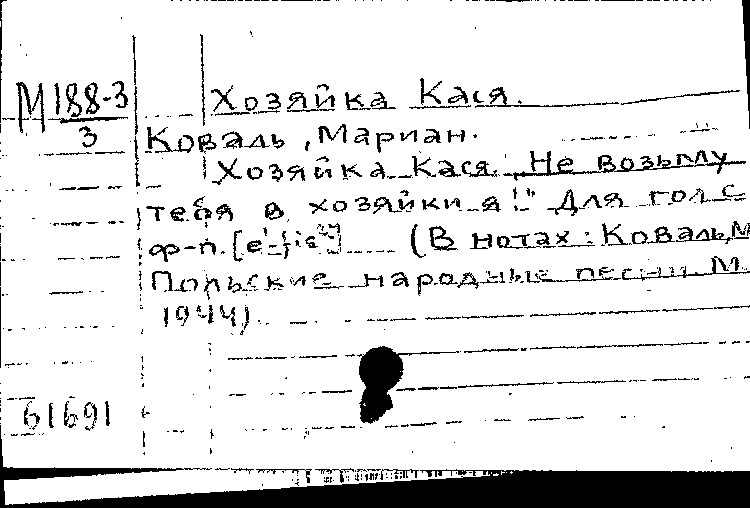 М188-3
3
Хозяйка Кася.
Коваль, Мариан.
Хозяйка Кася. „Не возьму
тебя в хозяйки я!" Для гол с
ф-п. [e'-fis"] (В нотах: Коваль, М
Польские народные песни. М.
1944).
61691